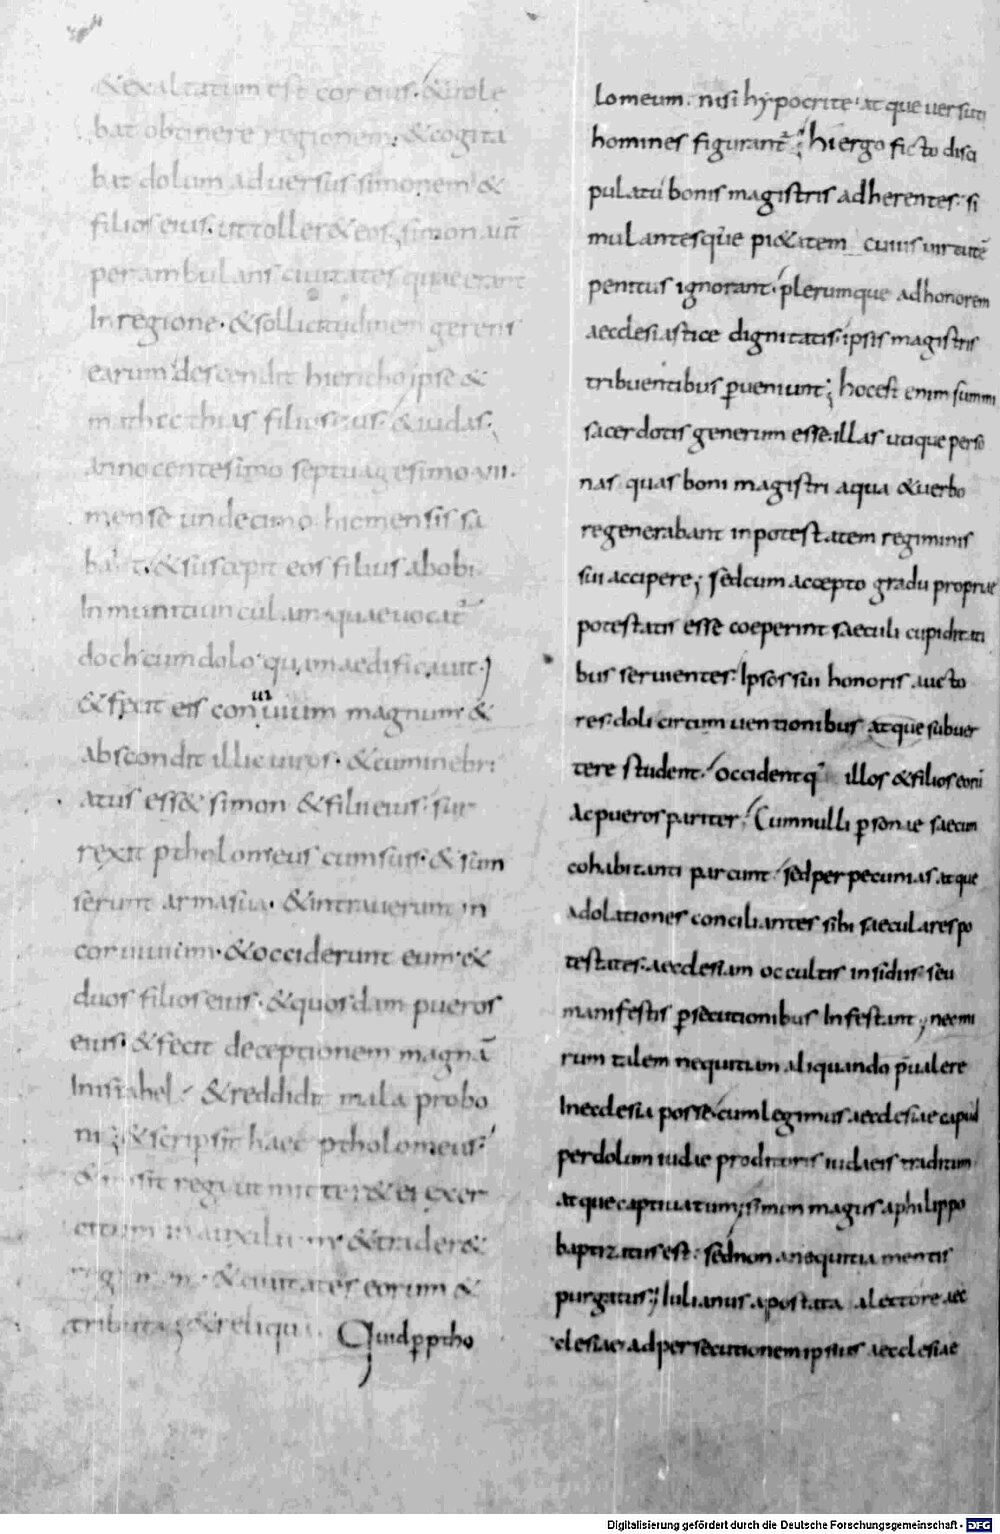 &exaltatum est cor eius. & uole
bat obtinere regionem. & cogita
bat dolum aduersus simonem &
filios eius. ut toller& eos; simon aut̄
perambulans ciuitates quae erant
In regione. & sollicitudinem gerens
earum descendit hiericho ipse &
mathathias filius eius. & iudas;
anno centesimo septuagesimo vii.
mense undecimo. hic mensis sa
bat. & suscepit eos filius abobi
In munitiunculam. quae uocat᷑
doch cum dolo. quam aedificauit;
& fecit eis conuiuium magnum &
abscondit illic uiros. & cum inebri
atus ess& simon & filii eius. sur
rexit ptholomeus cum suis. & sum
serunt arma sua. & intrauerunt in
conuiuium. & occiderunt eum. &
duos filios eius. & quosdam pueros
eius. & fecit deceptionem magnā
In israhel. & reddidit mala pro bo
nis; & scripsit haec ptholomeus.
& misit regi ut mitter& ei exer
citum in auxilium & trader&
regionem. & ciuitates eorum &
tributa; & reliqua. Quid p̱ ptho
lomeum. nisi hypocrite atque uersuti
homines figurant᷑; hi ergo ficto disci
pulatu bonis magistris adherentes. si
mulantesque pi&atem cuius uirtutē
penitus ignorant. plerumque ad honorem
aecclesiastice dignitatis. ipsis magistris
tribuentibus p̱ueniunt; hoc est enim summi
sacerdotis generum esse. illas utique perso
nas quas boni magistri aqua & uerbo
regenerabant in potestatem regiminis
sui accipere; sed cum accepto gradu proprie
potestatis esse coeperint saeculi cupiditati
bus seruientes. Ipsos sui honoris aucto
res. doli circumuentionibus atque subuer
tere student. occidentq; illos & filios eorū
Ac pueros pariter. Cum nulli p̱sonae saecum
cohabitanti parcunt. sed per pecunias atque
adolationes conciliantes sibi saeculares po
testates. aecclesiam occultis insidiis seu
manifestis p̱secutionibus Infestant; nec mi
rum talem nequitiam aliquando p̄ualere
In ecclesia posse. cum legimus aecclesiae caput
per dolum iudae proditoris iudaeis traditum
atque captiuatum; simon magus a philippo
baptizatus est. sed non a nequitia mentis
purgatus; Iulianus apostata a lectore aec
clesiae ad persecutionem ipsius aecclesiae
Digitalisierung gefördert durch die Deutsche Forschungsgemeinschaft - DFG